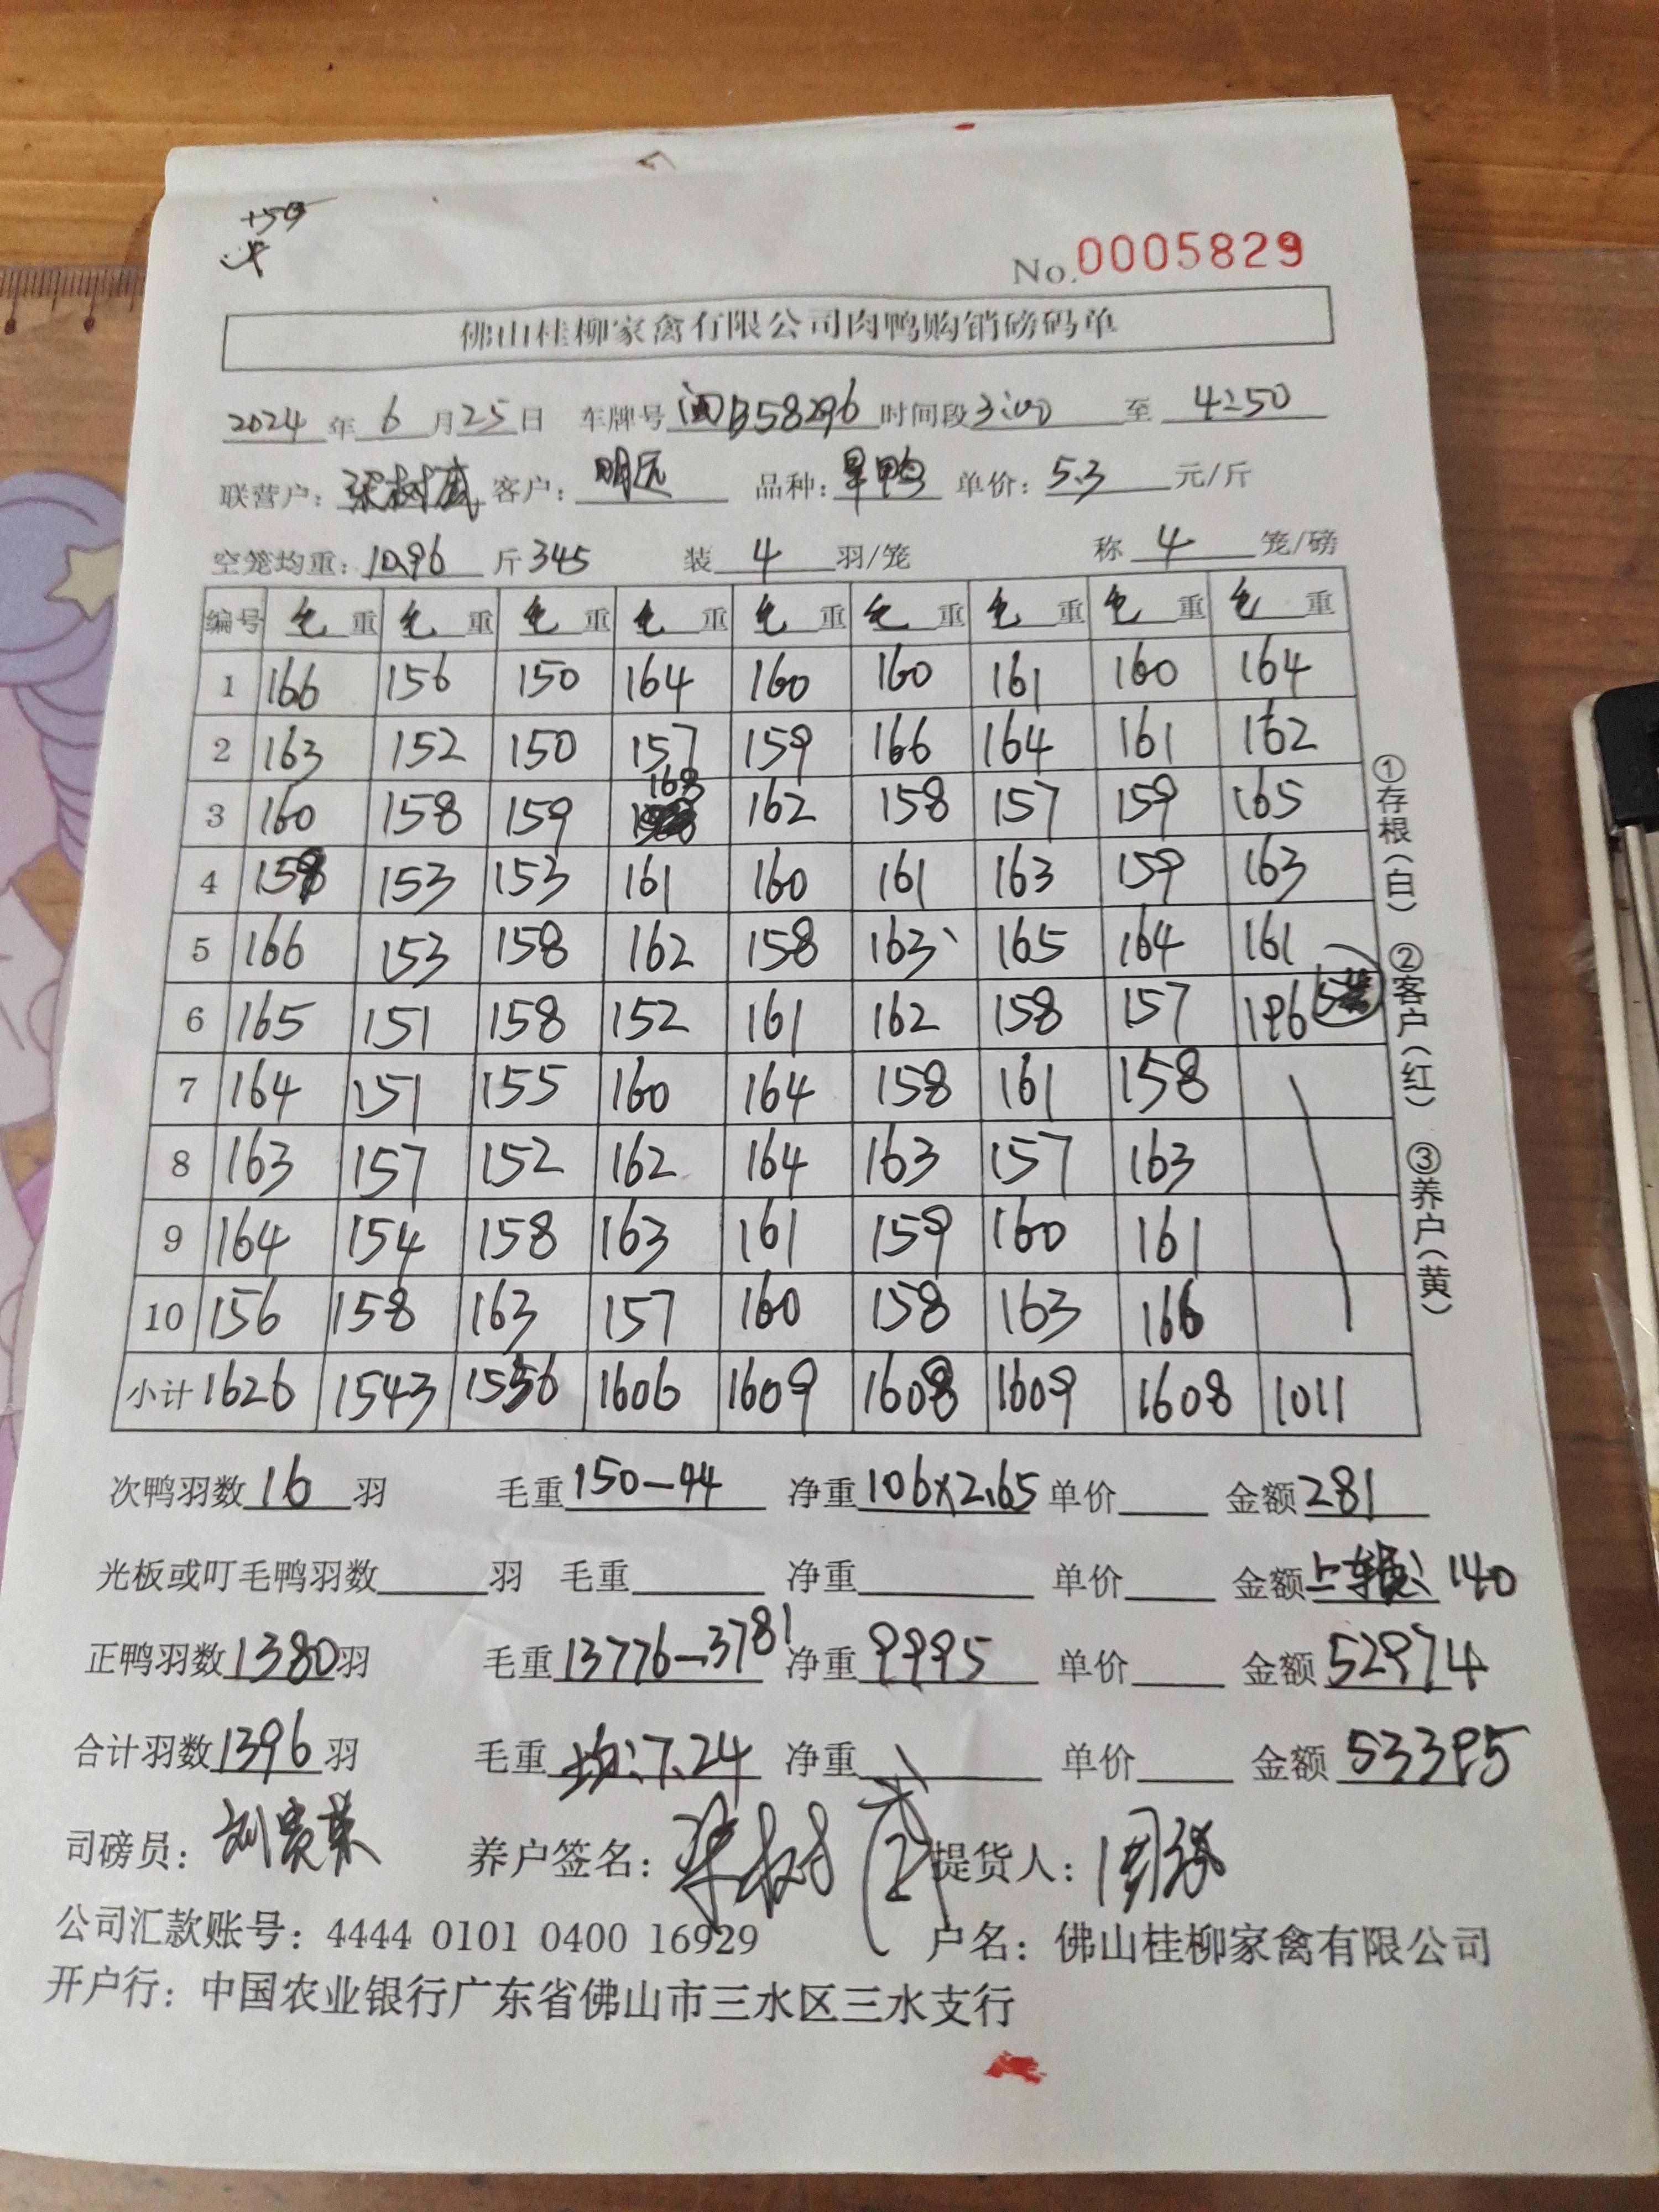 +50
No.0005829
佛山桂柳家禽有限公司肉鸭购销磅码单
2024年6月25日 车牌号闽B58296 时间段3:00至4:50
联营户: 梁树 客户: 明远 品种: 旱鸭 单价: 5.3元/斤
空笼均重: 10.96斤 345 装4羽/笼 称4笼/磅
编号 毛重 毛重 毛重 毛重 毛重 毛重 毛重 毛重 毛重
1 166 156 150 164 160 160 161 160 164
2 163 152 150 157 159 166 164 161 162
3 160 158 159 168 162 158 157 159 165
4 159 153 153 161 160 161 163 159 163
5 166 153 158 162 158 163 165 164 161
6 165 151 158 152 161 162 158 157 196 5
7 164 151 155 160 164 158 161 158
8 163 157 152 162 164 163 157 163
9 164 154 158 163 161 159 160 161
10 156 158 163 157 160 158 163 166
小计 1626 1543 1556 1606 1609 1608 1609 1608 1011
①存根(白) ②客户(红) ③养户(黄)
次鸭羽数16羽 毛重150-44 净重106×2.65 单价 金额281
光板或叮毛鸭羽数 羽 毛重 净重 单价 金额上车费: 140
正鸭羽数1380羽 毛重13776-3781 净重9995 单价 金额52974
合计羽数1396羽 毛重均:7.24 净重 单价 金额53395
司磅员: 刘贵荣 养户签名: 梁树 提货人: 周
公司汇款账号: 4444 0101 0400 16929 户名: 佛山桂柳家禽有限公司
开户行: 中国农业银行广东省佛山市三水区三水支行